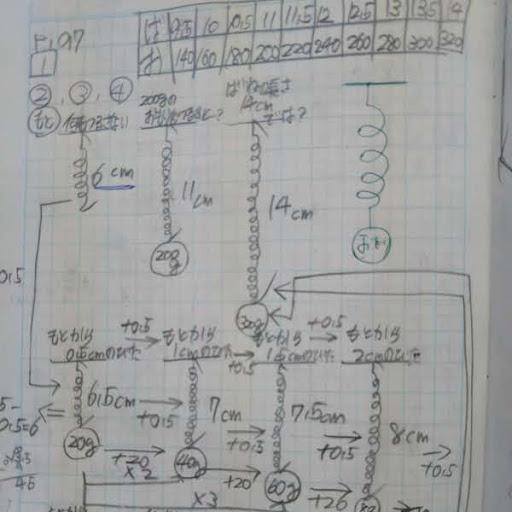 P.97
1
ば 9.5 10 10.5 11 11.5 12 12.5 13 13.5 14
お 140 160 180 200 220 240 260 280 300 320
②,③,④
200gの
ばねの長さ
14cm
6cm
11cm
14cm
20g
おもり
320g
0.5
もとから +0.5 もとから もとから +0.5 もとから
0.5cmのびた 1cmのびた +0.5 1.5cmのびた 2cmのびた
6.5cm +0.5 7cm +0.5 7.5cm +0.5 8cm +0.5
0.5=6
20g +20 40g +20 60g +20
×2
×3